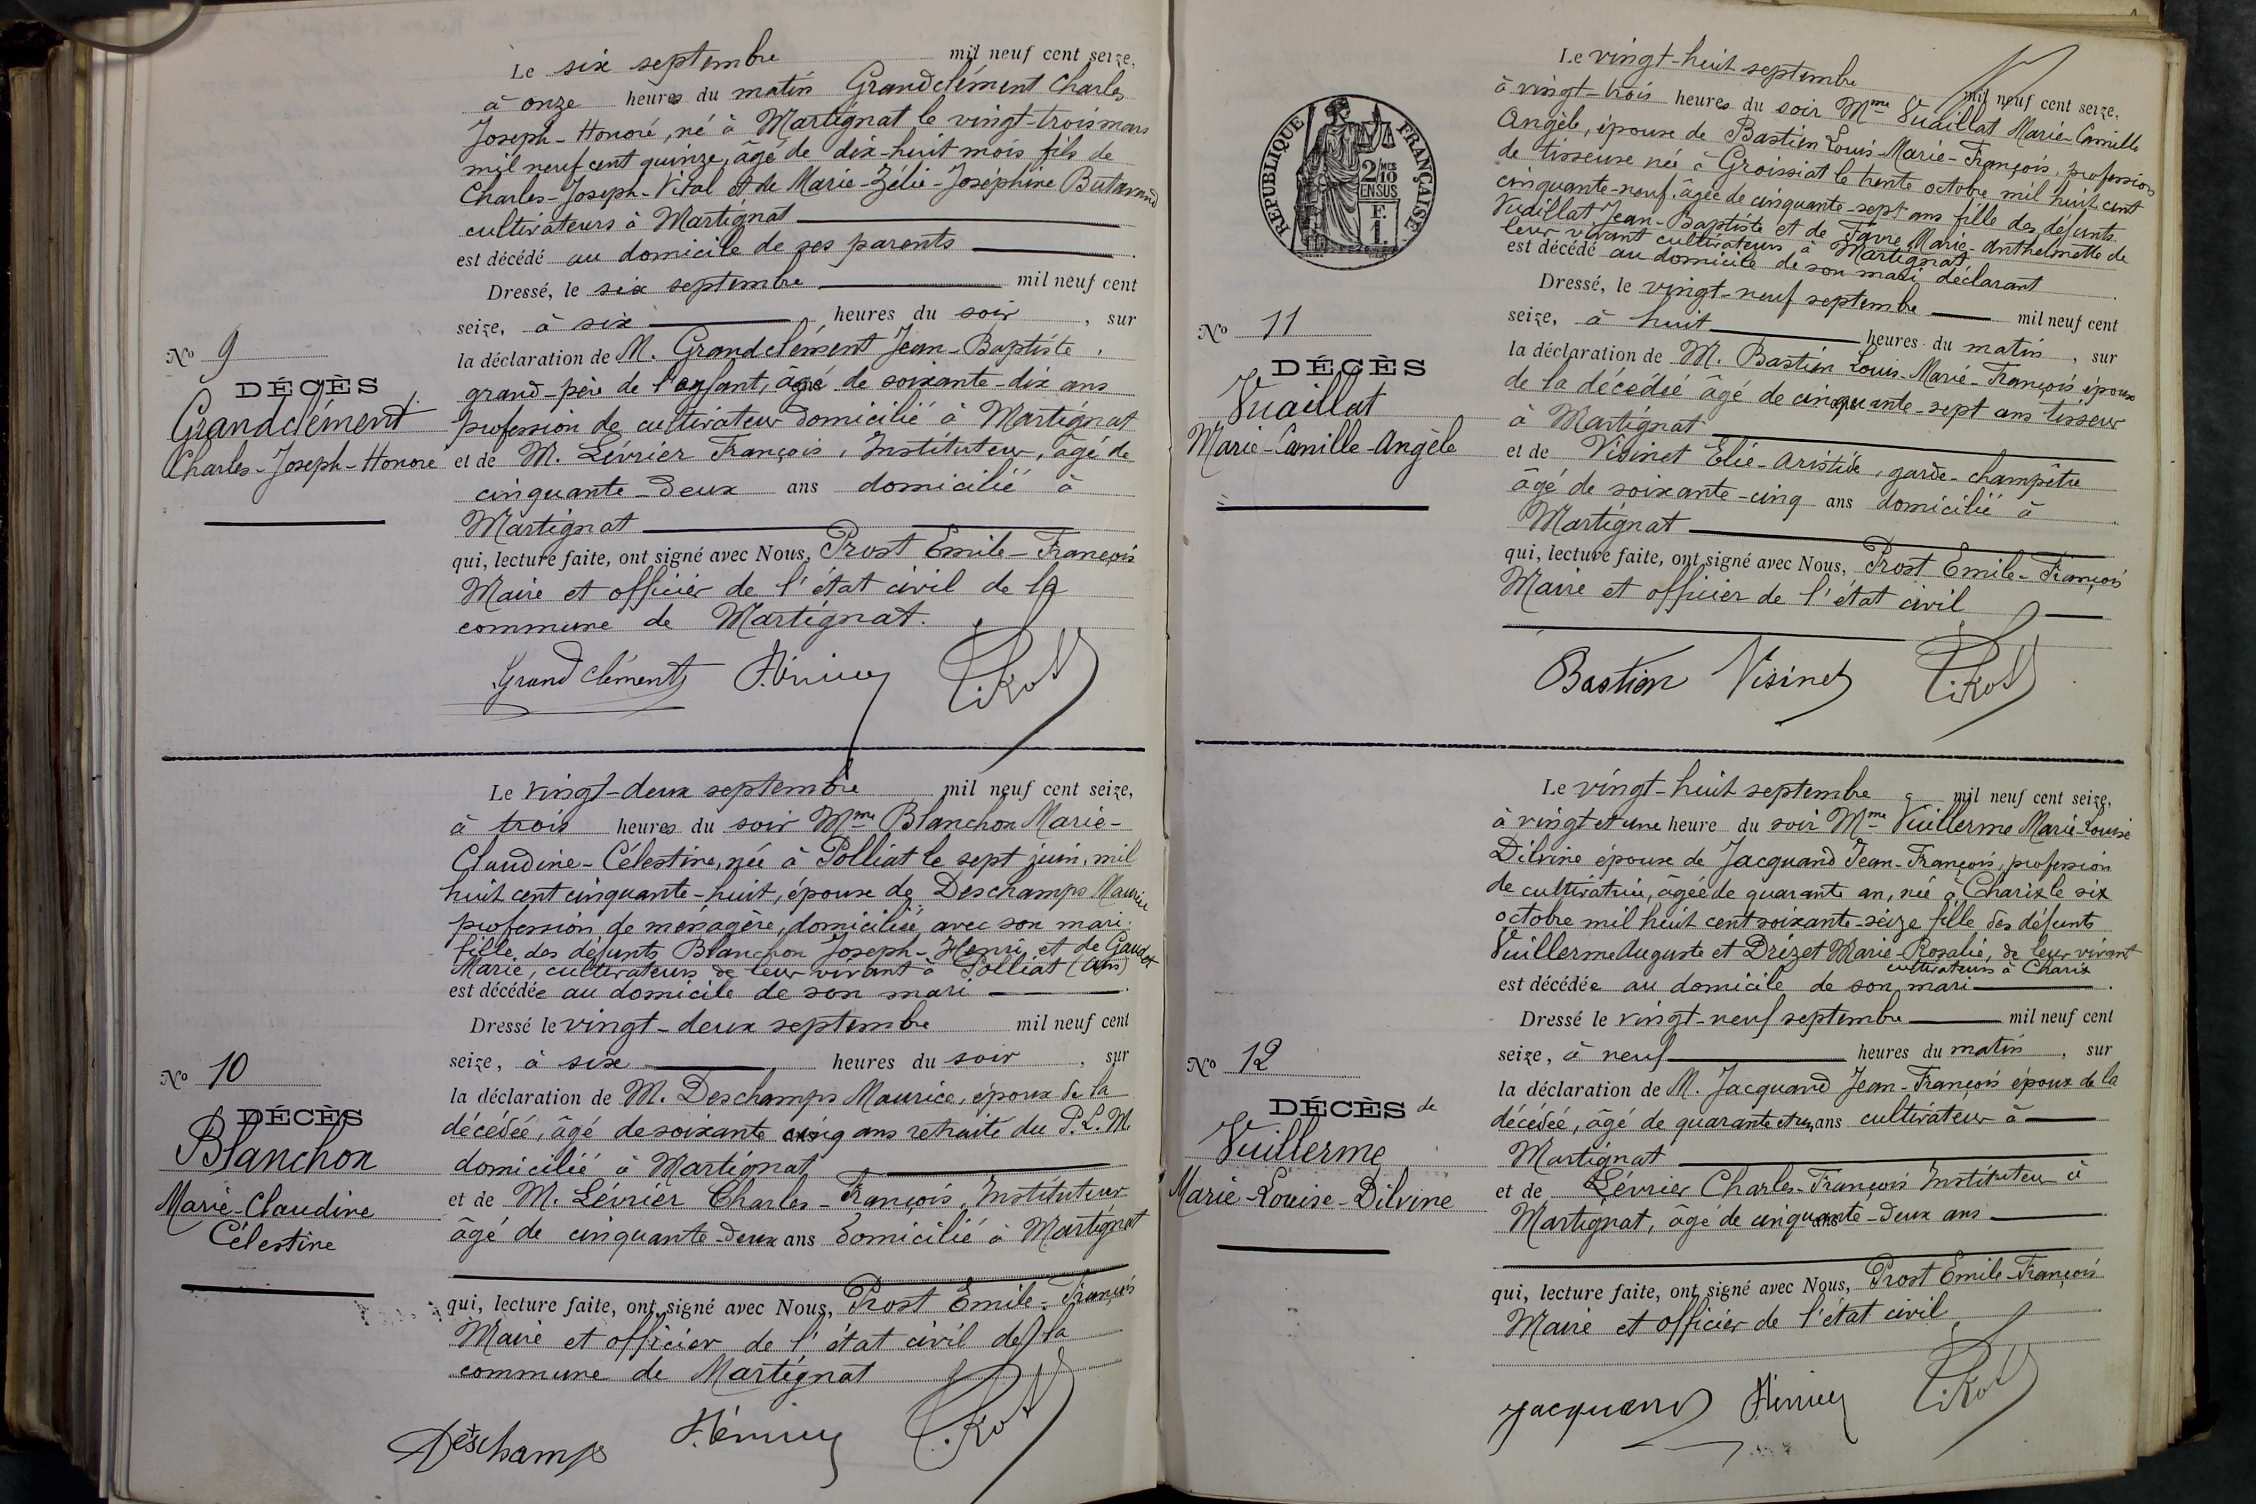 Le six septembre mil neuf cent seize,
à onze heures du matin Grandclément Charles
Joseph-Honoré, né à Martignat le vingt-trois mars
mil neuf cent quinze, âgé de dix-huit mois fils de
Charles-Joseph-Vital et de Marie-Zélie-Joséphine Butavand
cultivateurs à Martignat
est décédé au domicile de ses parents
Dressé, le six septembre mil neuf cent
seize, à six heures du soir, sur
la déclaration de M. Grandclément Jean-Baptiste,
grand-père de l'enfant, âgé de soixante-dix ans
profession de cultivateur domicilié à Martignat
et de M. Lévrier François, Instituteur, âgé de
cinquante-deux ans domicilié à
Martignat
qui, lecture faite, ont signé avec Nous, Prost Emile-François
Maire et officier de l'état civil de la
commune de Martignat.
Grandclément
No 9
DÉCÈS
Grandclément
Charles-Joseph-Honoré
Le vingt-deux septembre mil neuf cent seize,
à trois heures du soir Mme Blanchon Marie-
Claudine-Célestine, née à Polliat le sept juin, mil
huit cent cinquante-huit, épouse de Deschamps Maurice
profession de ménagère, domiciliée avec son mari
fille des défunts Blanchon Joseph-Henri et de Gaudet
Marie, cultivateurs de leur vivant à Polliat (Ain)
est décédée au domicile de son mari
Dressé le vingt-deux septembre mil neuf cent
seize, à six heures du soir, sur
la déclaration de M. Deschamps Maurice, époux de la
décédée, âgé de soixante cinq ans retraité du P.L.M.
domicilié à Martignat
et de M. Lévrier Charles-François, Instituteur
âgé de cinquante-deux ans domicilié à Martignat
qui, lecture faite, ont signé avec Nous, Prost Emile-François
Maire et officier de l'état civil de la
commune de Martignat
Deschamps
No 10
DÉCÈS
Blanchon
Marie-Claudine
Célestine
RÉPUBLIQUE FRANÇAISE
2/10 MES
EN SUS
F.
1.
Le vingt-huit septembre mil neuf cent seize,
à vingt-trois heures du soir Mme Vuaillat Marie-Camille
Angèle, épouse de Bastien Louis-Marie-François, profession
de tisseuse née à Groissiat le trente octobre mil huit cent
cinquante-neuf, âgée de cinquante-sept ans fille des défunts
Vuaillat Jean-Baptiste et de Favre Marie-Anthelmette de
leur vivant cultivateurs à Martignat,
est décédé au domicile de son mari déclarant
Dressé, le vingt-neuf septembre mil neuf cent
seize, à huit heures du matin, sur
la déclaration de M. Bastien Louis-Marie-François époux
de la décédée âgé de cinquante-sept ans tisseur
à Martignat
et de Visinet Elie-Aristide, garde-champêtre
âgé de soixante-cinq ans domicilié à
Martignat
qui, lecture faite, ont signé avec Nous, Prost Emile-François
Maire et officier de l'état civil
Bastien Visinet
No 11
DÉCÈS
Vuaillat
Marie-Camille-Angèle
Le vingt-huit septembre mil neuf cent seize,
à vingt et une heure du soir Mme Vuillerme Marie-Louise
Dilvine épouse de Jacquand Jean-François, profession
de cultivatrice, âgée de quarante an, née à Charix le six
octobre mil huit cent soixante-seize fille des défunts
Vuillerme Auguste et Drizet Marie-Rosalie, de leur vivant
cultivateurs à Charix
est décédée au domicile de son mari
Dressé le vingt-neuf septembre mil neuf cent
seize, à neuf heures du matin, sur
la déclaration de M. Jacquand Jean-François époux de la
décédée, âgé de quarante et un ans cultivateur à
Martignat
et de Lévrier Charles-François Instituteur à
Martignat, âgé de cinquante-deux ans
qui, lecture faite, ont signé avec Nous, Prost Emile-François
Maire et officier de l'état civil
Jacquand
No 12
DÉCÈS de
Vuillerme
Marie-Louise-Dilvine